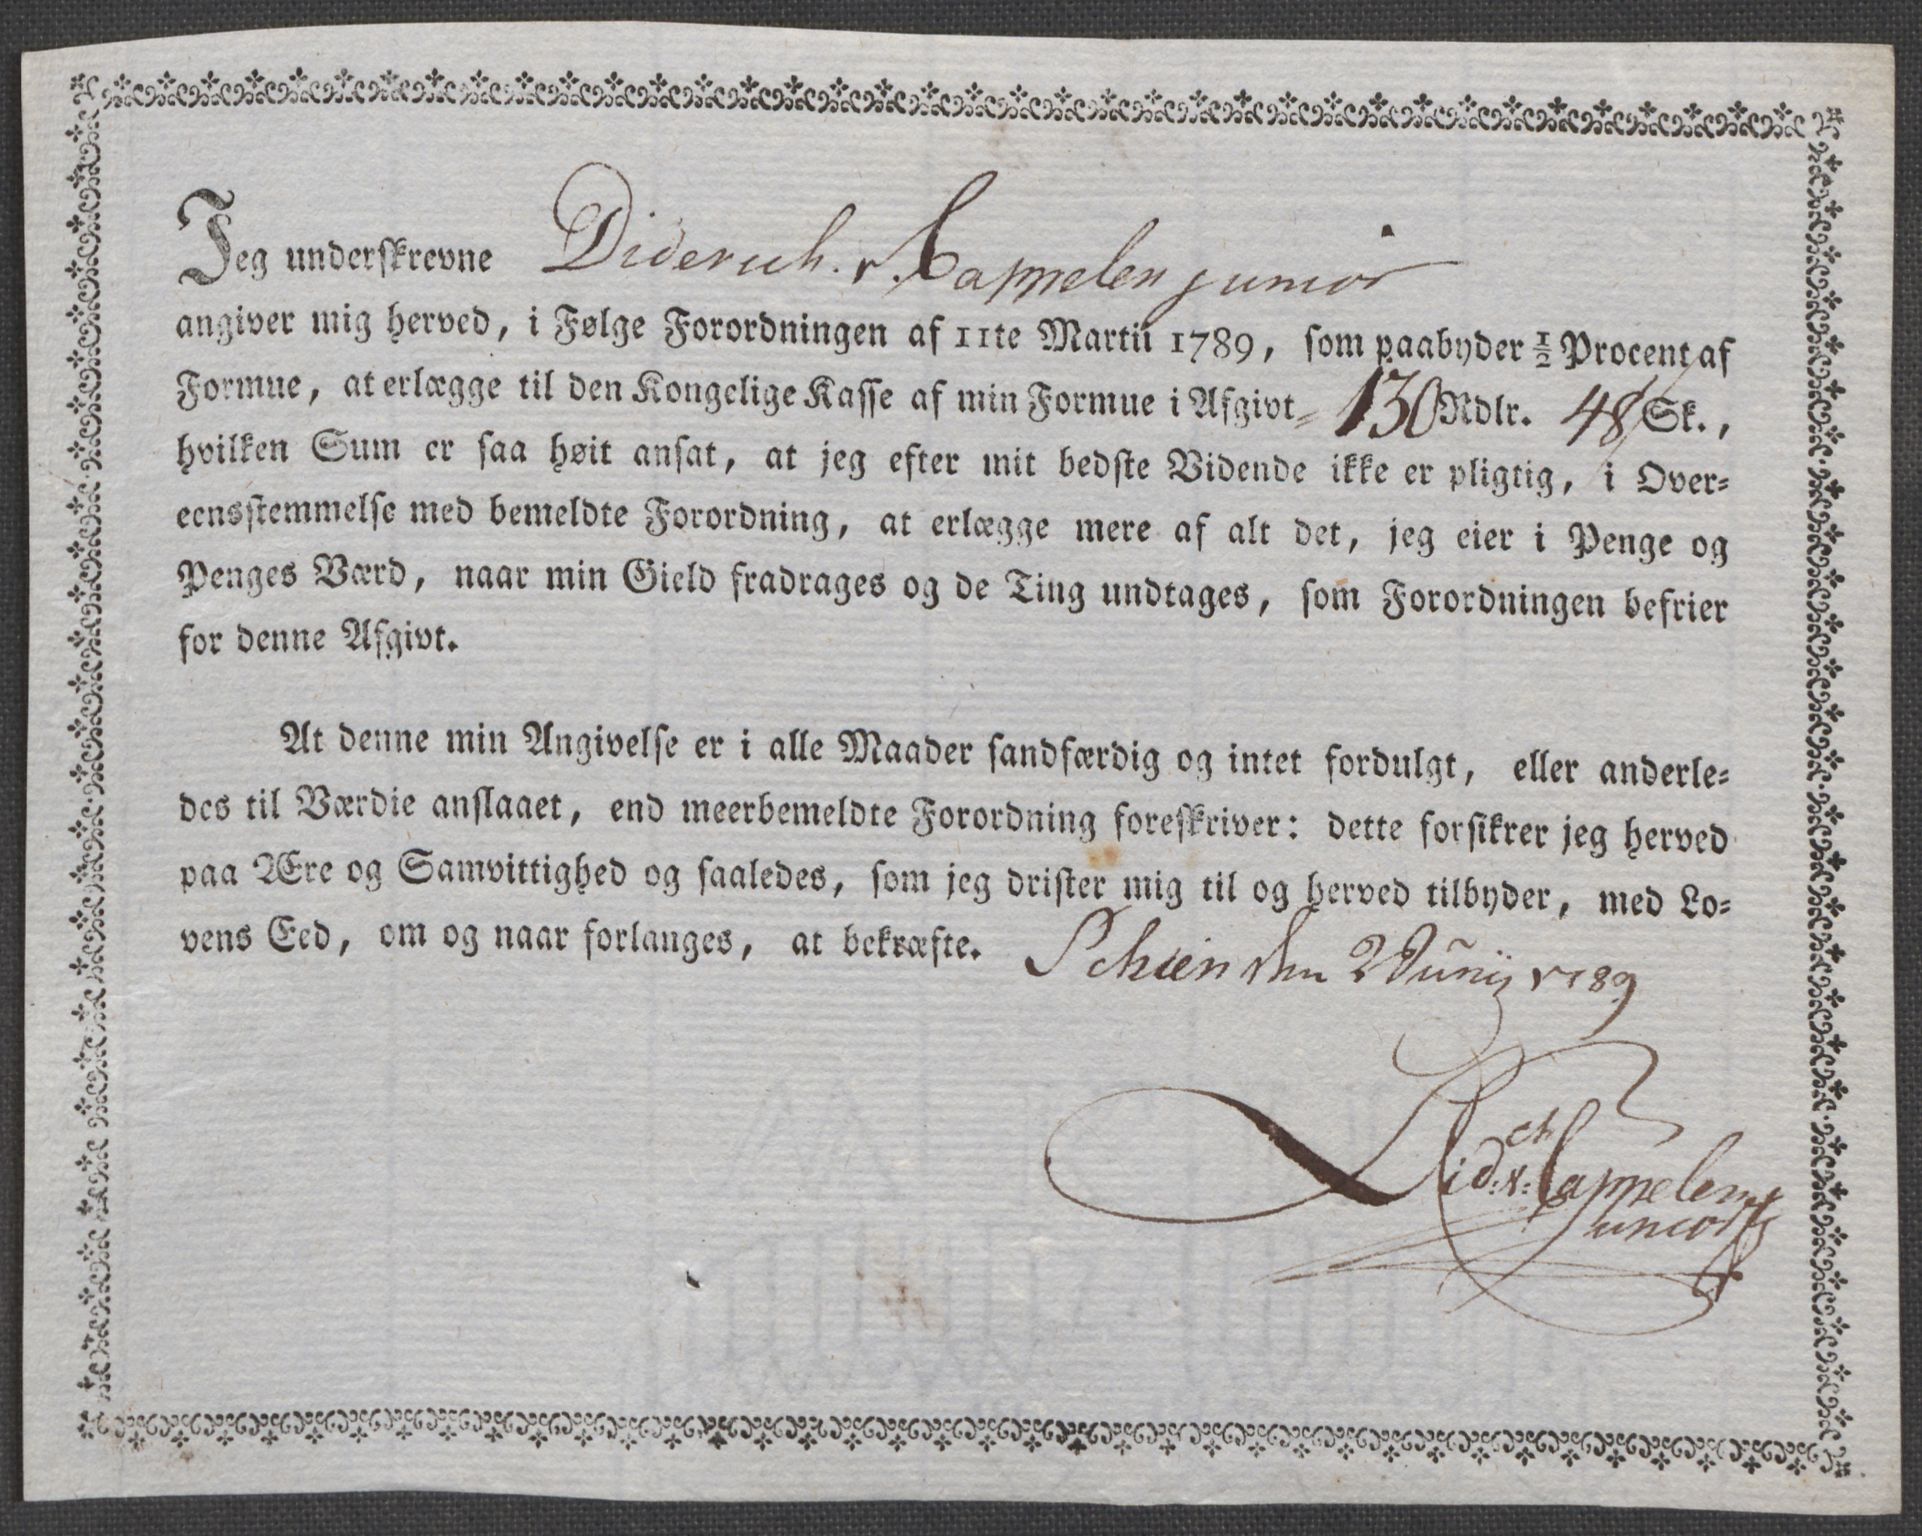 Jeg underskrevne Diderich. v. Cappelen junior
angiver mig herved, i Følge Forordningen af 11te Martii 1789, som paabyder ½ Procent af
Formue, at erlægge til den Kongelige Kasse af min Formue i Afgivt= 130 Rdlr. 48 Sk.,
hvilken Sum er saa høit ansat, at jeg efter mit bedste Vidende ikke er pligtig, i Over=
eensstemmelse med bemeldte Forordning, at erlægge mere af alt det, jeg eier i Penge og
Penges Værd, naar min Gield fradrages og de Ting undtages, som Forordningen befrier
for denne Afgivt.
At denne min Angivelse er i alle Maader sandfærdig og intet fordulgt, eller anderle=
des til Værdie anslaaet, end meerbemeldte Forordning foreskriver: dette forsikrer jeg herved
paa Ære og Samvittighed og saaledes, som jeg drister mig til og herved tilbyder, med Lo=
vens Eed, om og naar forlanges, at bekræfte. Schien den 2 Junij 1789
Did:ch v: Cappelen
junior